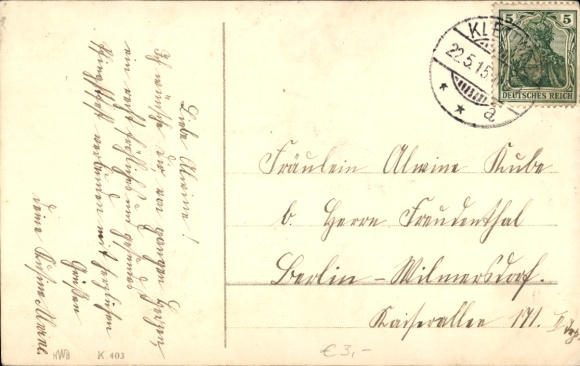 Liebe Alwine!
Ich wünsche dir von ganzem Herzen
ein recht fröhliches und gesundes
Pfingstfest verbunden mit herzlichen
Grüßen
deine Kusine
Fräulein Alwine Kube
b. Herrn Freudenthal
Berlin-Wilmersdorf.
Kaiserallee 171.
22.5.15
a
5 5
DEUTSCHES REICH
HWB K 403
€ 3,-